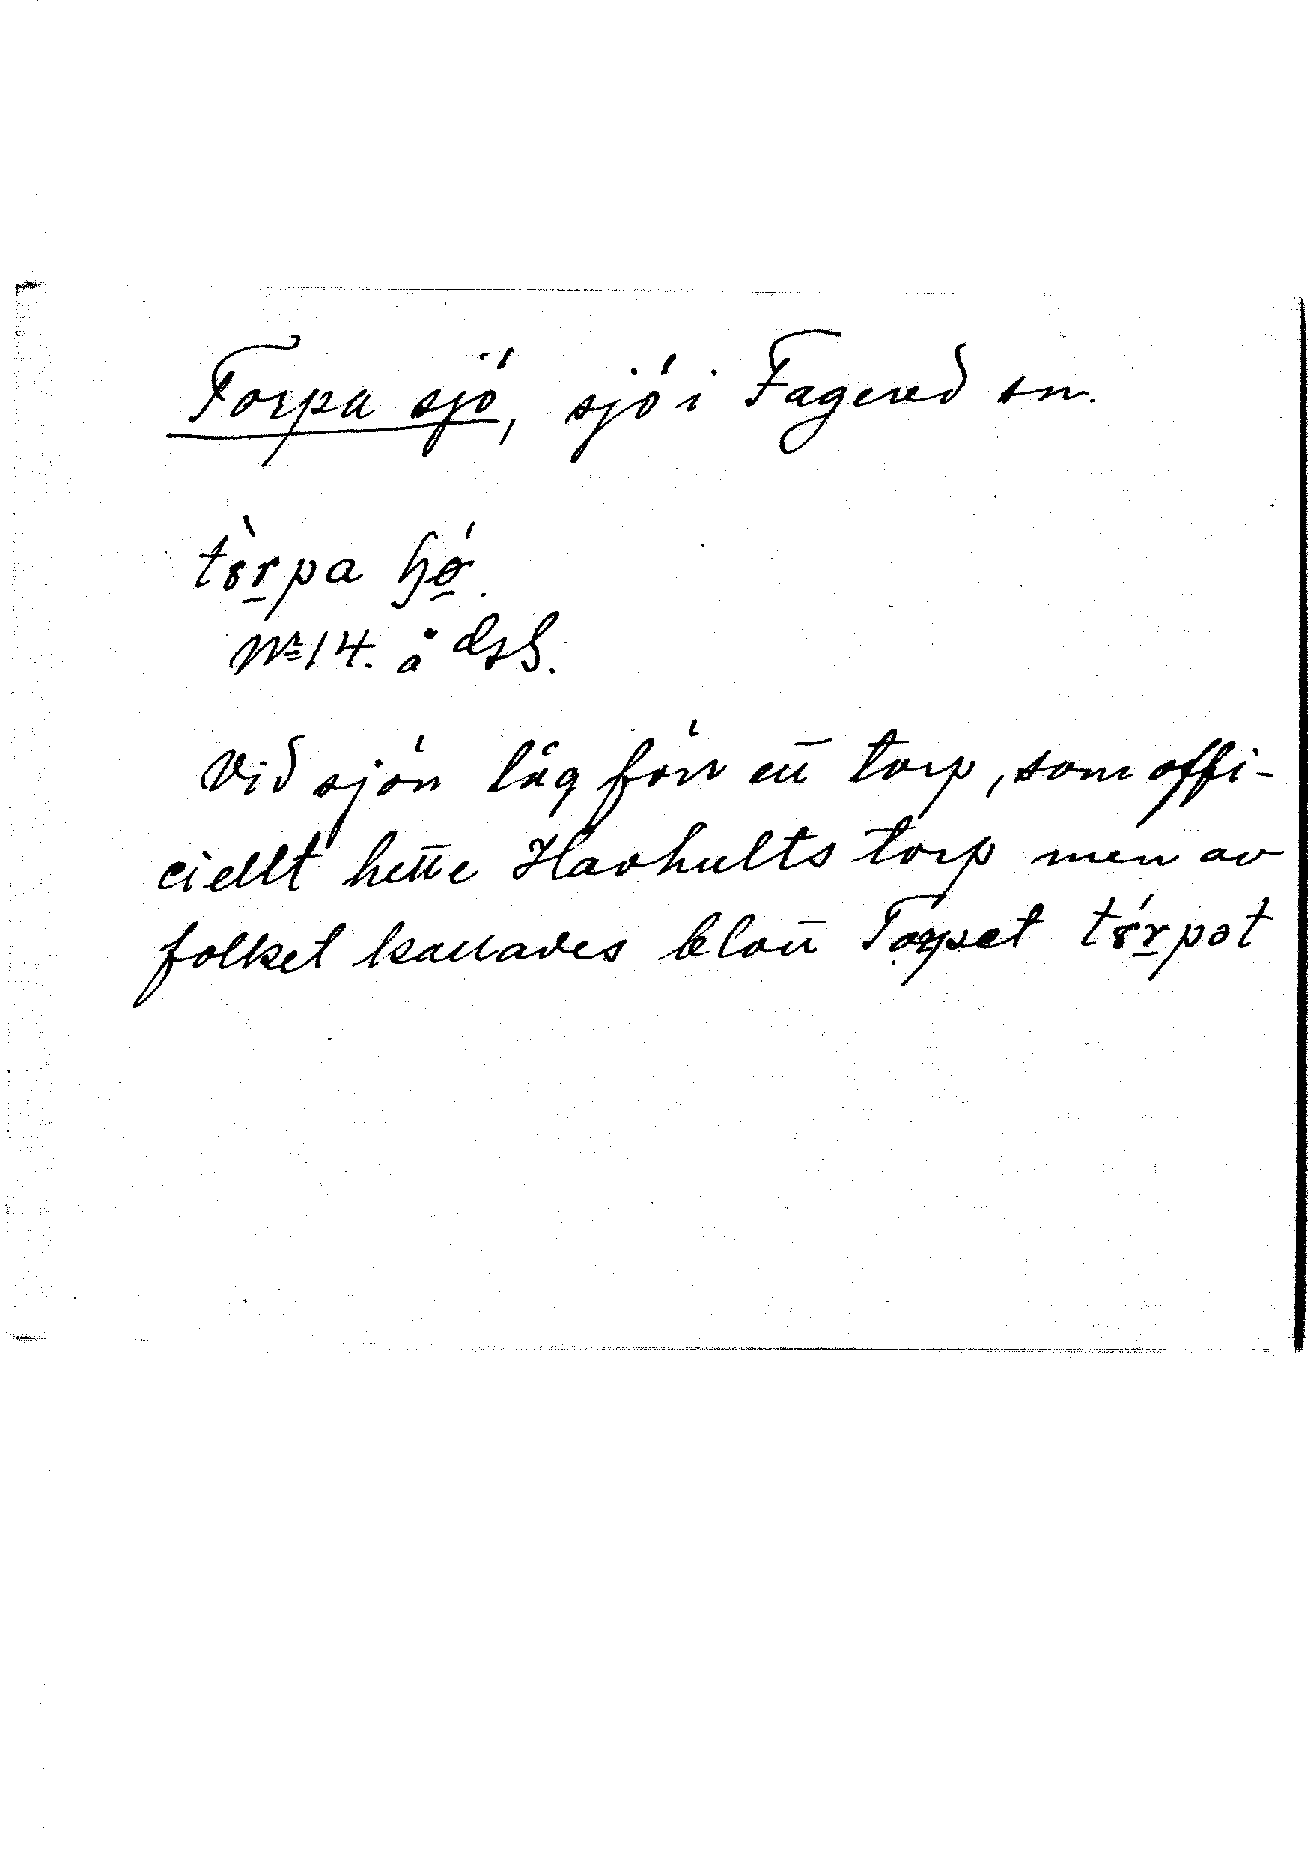 Torpa sjö, sjö i Fagered sn.
tɵ̀rpa ɧǿ.
Nº 14. å
Vid sjön låg förr ett torp, som offi-
ciellt hette Havhults torp men av
folket kallades blott Torpet tɵ́rpət